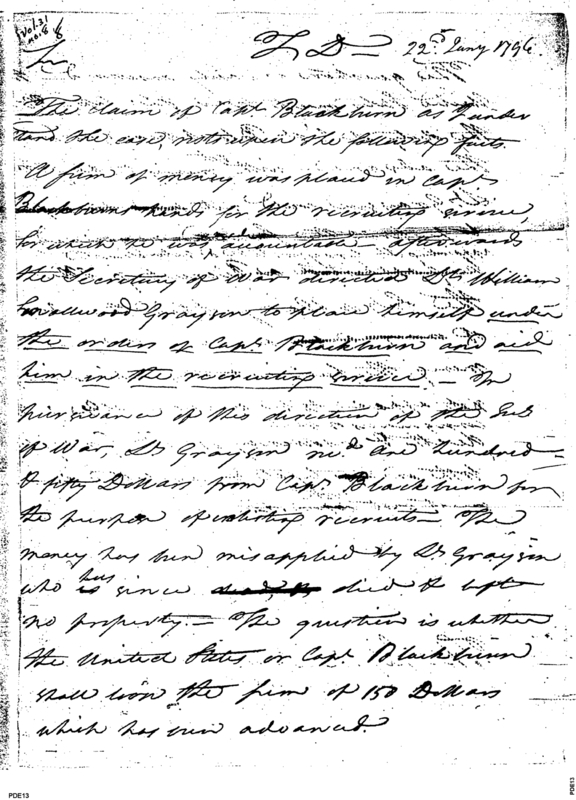 Vol. 21
No. 8
8
T D — 22d. Jany 1796.
Sir
The claim of Capt. Blackburn as I under
stand the case, rests upon the following facts
A sum of money was placed in Capt.
Blackburns hands for the recruiting service,
for which he was accountable — afterwards
the Secretary of War directed Lt. William
Smallwood Grayson to place himself under
the orders of Capt. Blackburn and aid
him in the recruiting service. — In
pursuance of this direction of the Sec
of War, Lt. Grayson recd. one hundred
& fifty Dollars from Capt. Blackburn for
the purpose of enlisting recruits — The
money has been misapplied by Lt. Grayson
who has since died & left
no property. — The question is whether
the United States or Capt. Blackburn
shall loose the sum of 150 Dollars
which has been advanced.
PDE13
PDE13